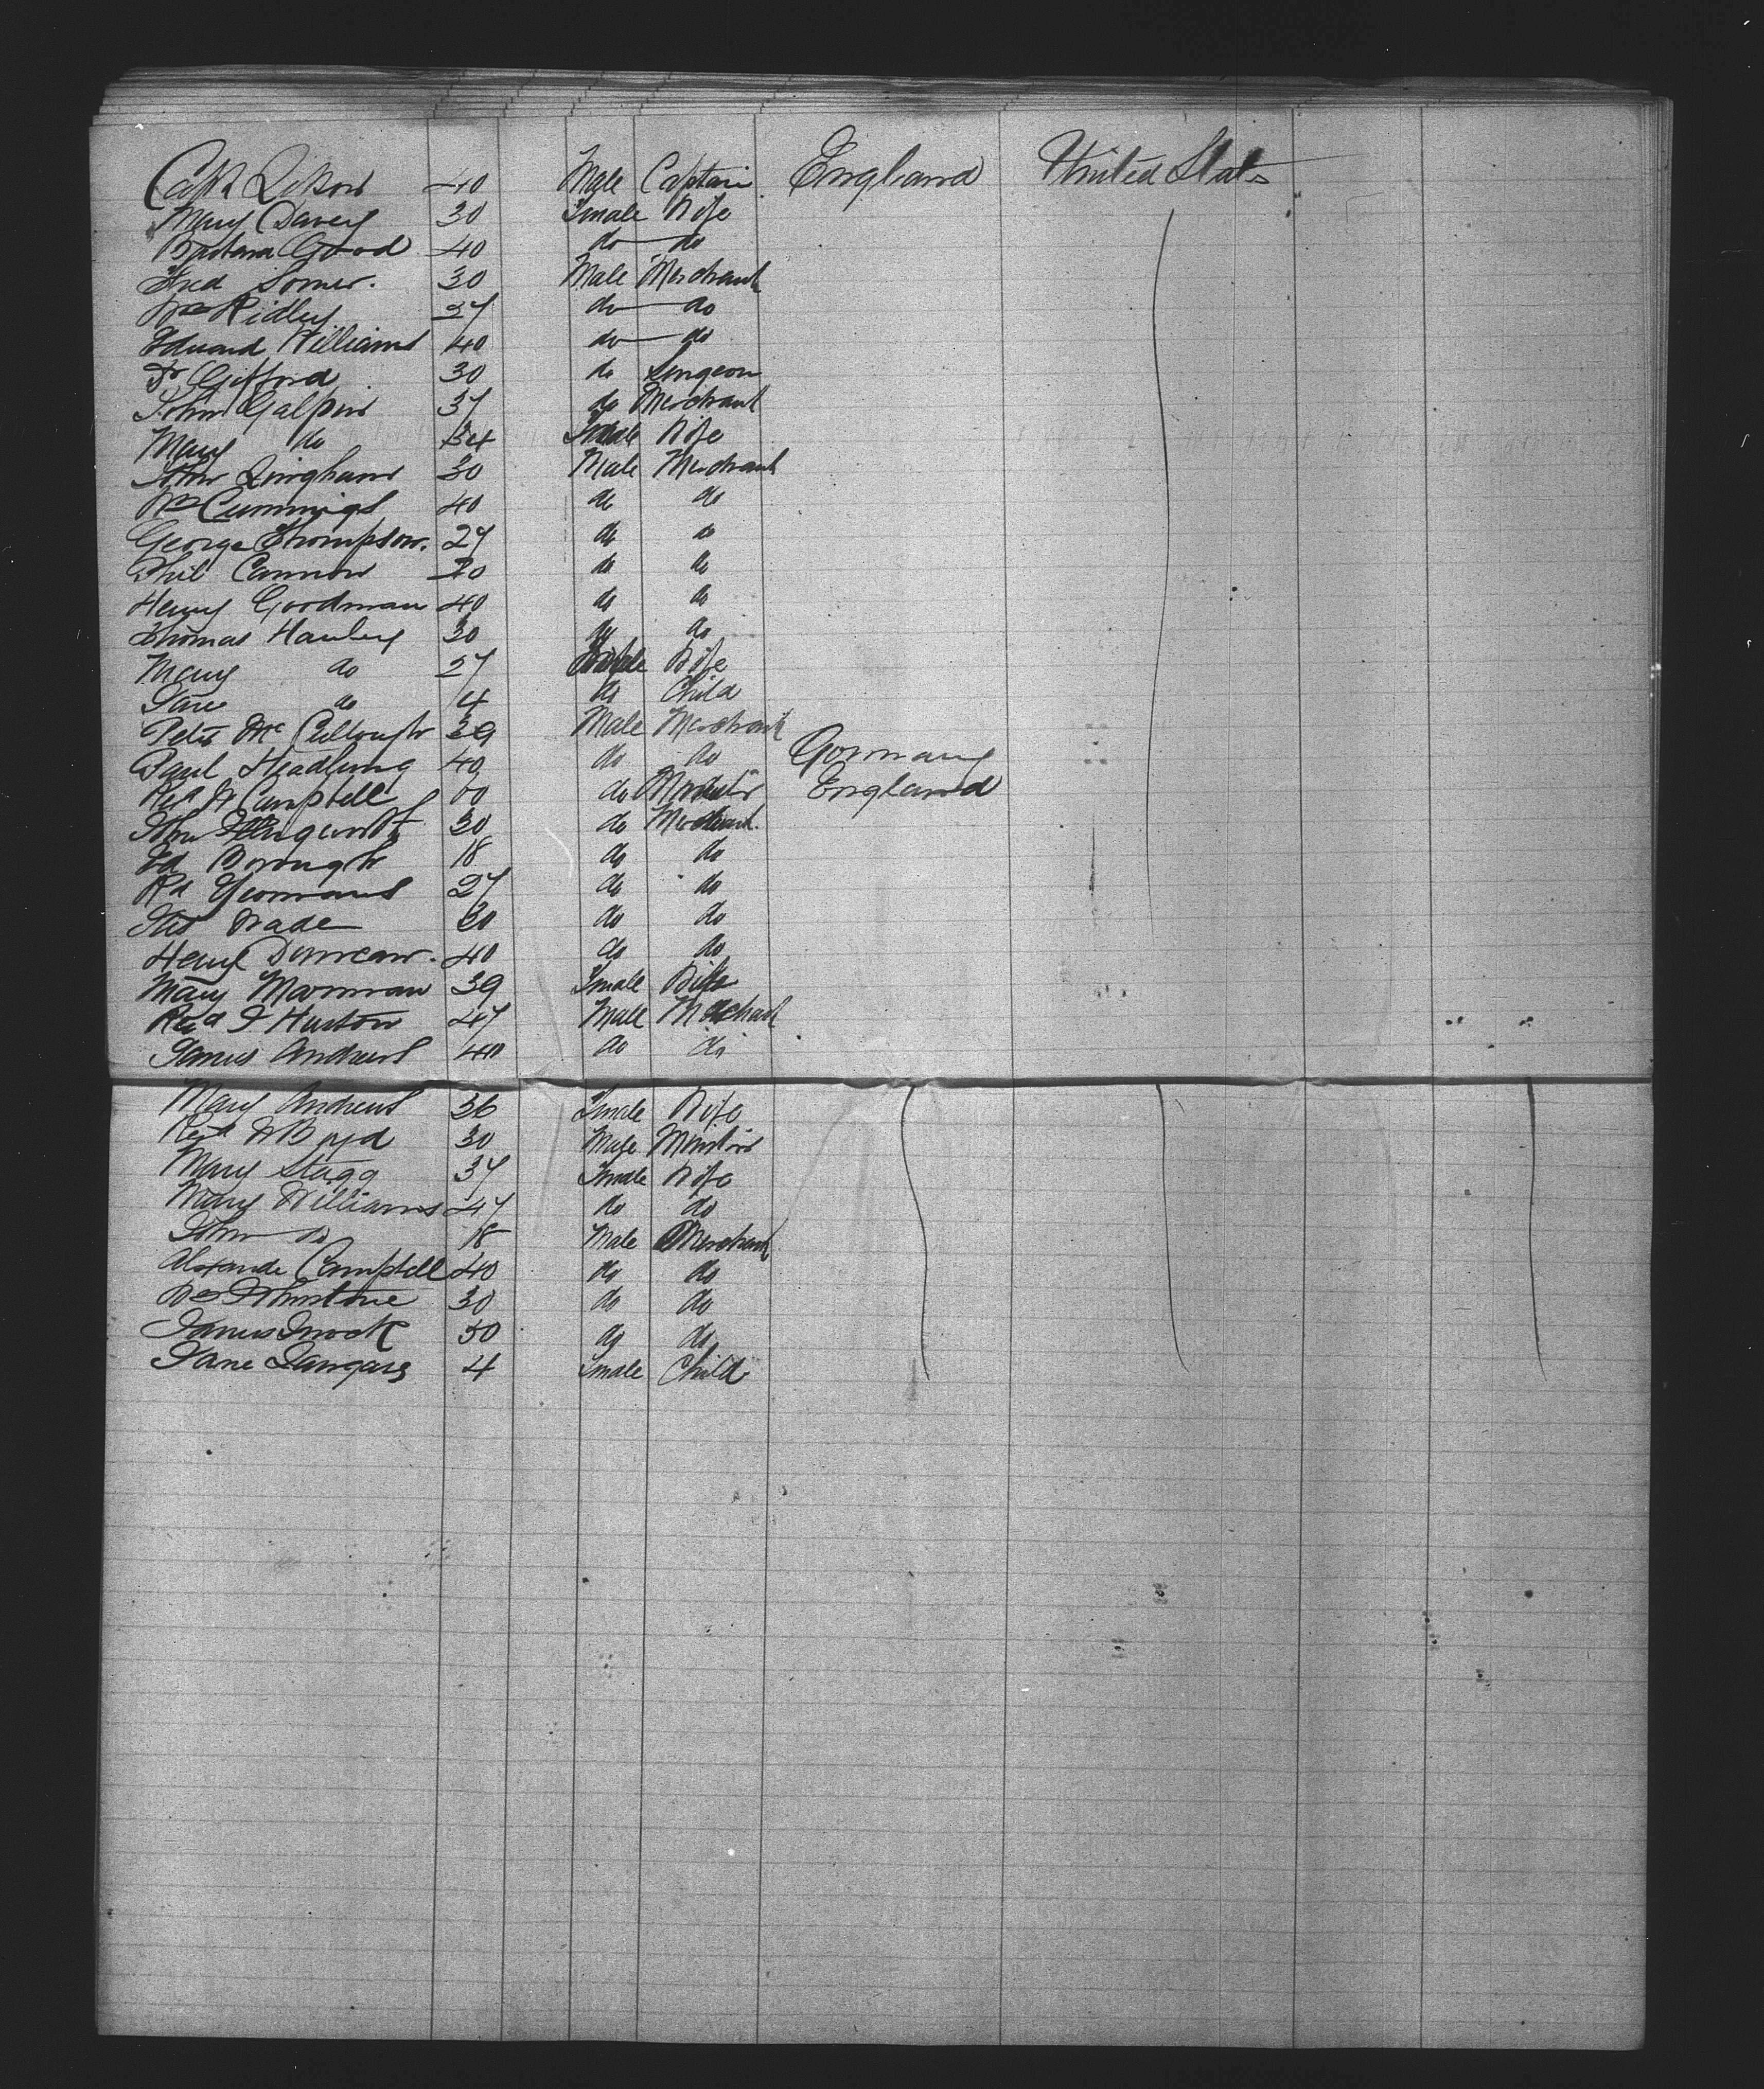 Capt 40 Male Captain England United States
Mary Davey 30 Female Wife
Barbara Good 40 do do
Fred Somer. 30 Male Merchant
Wm Ridley 37 do do
Edward Williams 40 do do
Dr Gifford 30 do Surgeon
John Galpin 37 do Merchant
Mary do 34 Female Wife
John Lingham 30 Male Merchant
Wm Cummings 40 do do
George Thompson. 27 do do
Phil Cannon 20 do do
Henry Goodman 40 do do
Thomas Hanley 30 do do
Mary do 27 Female Wife
Jane do 4 do Child
Peter McCullough 39 Male Merchant
Paul 40 do do Germany
Revd W Campbell 60 do Minister England
John 30 do Merchant.
Ed Borough 18 do do
Rd Yeomans 27 do do
Wade 30 do do
Henry Duncan. 40 do do
Mary Moorman 39 Female Wife
Revd J Huston 47 Male Merchant
James Andrews 40 do do
Mary Andrews 36 Female Wife
Revd W Boyd 30 Male Minister
Mary Stagg 37 Female Wife
Mary Williams 47 do do
John do 18 Male Merchant
Alexande Campbell 40 do do
Wm Johnstone 30 do do
James 50 do do
Jane 4 Female Child